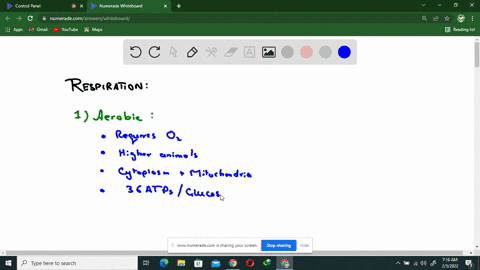 Control Panel
Numerade Whiteboard
numerade.com/answers/whiteboard/
Apps
Gmail
YouTube
Maps
Reading list
RESPIRATION:
1) Aerobic :
• Requires O₂
• Higher animals
• Cytoplasm + Mitochondria
• 36 ATPs / Glucos
www.numerade.com is sharing your screen.
Stop sharing
Hide
Type here to search
7:16 AM
2/5/2022